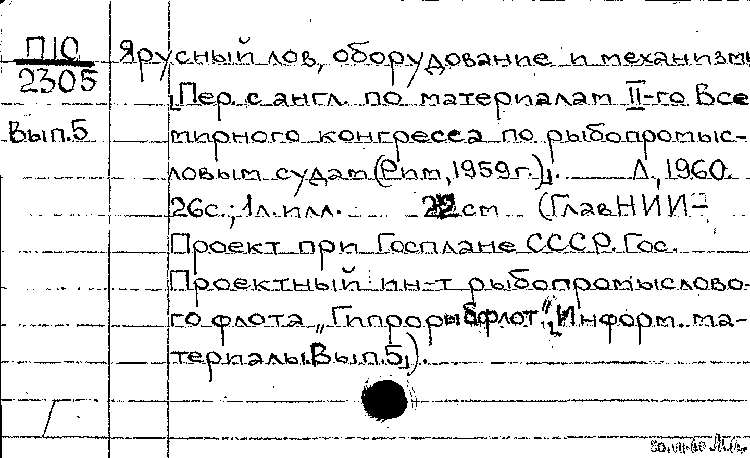 П10 Ярусный лов, оборудование и механизмы
2305 [Пер. с англ. по материалам II-го Все
Вып.5 мирного конгресса по рыбопромыс-
ловым судам (Рим, 1959 г.)]. Л., 1960.
26с.; 1л. илл. 22 см (ГлавНИИ-
Проект при Госплане СССР. Гос.
Проектный ин-т рыбопромыслово-
го флота „Гипрорыбфлот". [Информ. ма-
териалы. Вып. 5]).